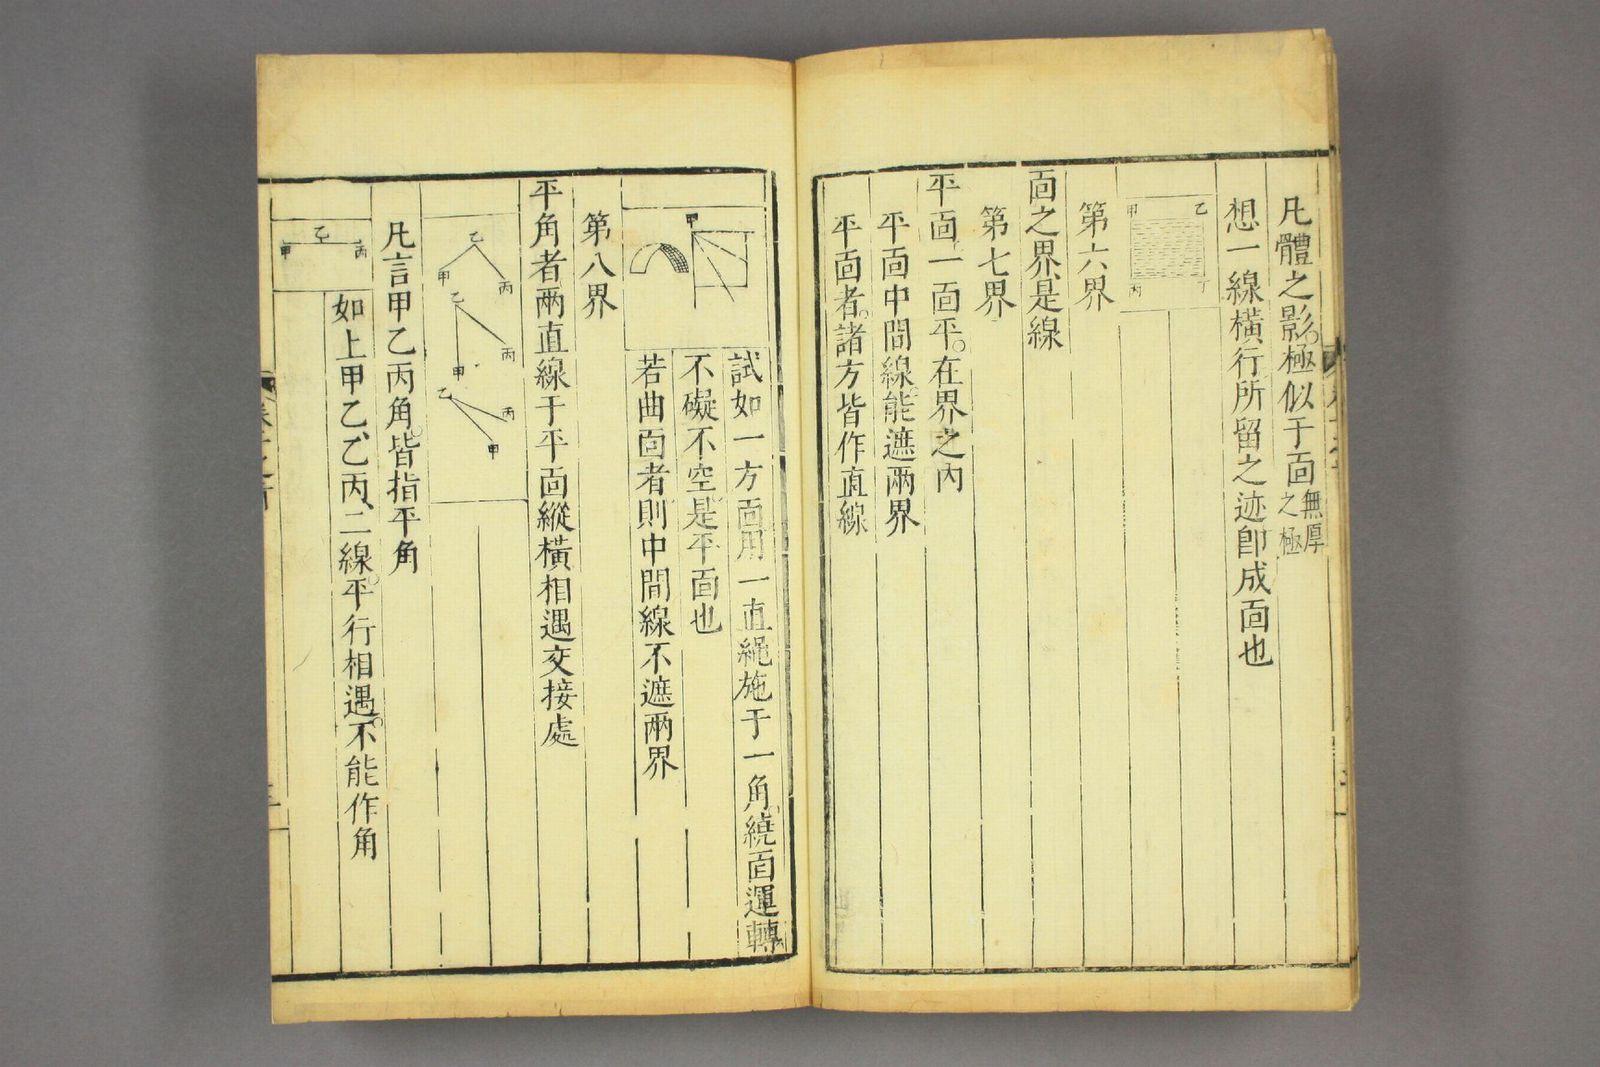 凡體之影。極似于面無厚之極
想一線橫行所留之迹即成面也
甲 乙 丙 丁
第六界
面之界是線
第七界
平面一面平。在界之內
平面中間線。能遮兩界
平面者。諸方皆作直線
試如一方面用一直繩施于一角。繞面運轉
不礙不空是平面也
若曲面者則中間線不遮兩界
甲
第八界
平角者兩直線于平面縱橫相遇交接處
乙 甲 丙
乙 丙 甲
乙 丙 甲
凡言甲乙丙角。皆指平角
如上甲乙、乙丙、二線。平行相遇。不能作角
甲 乙 丙